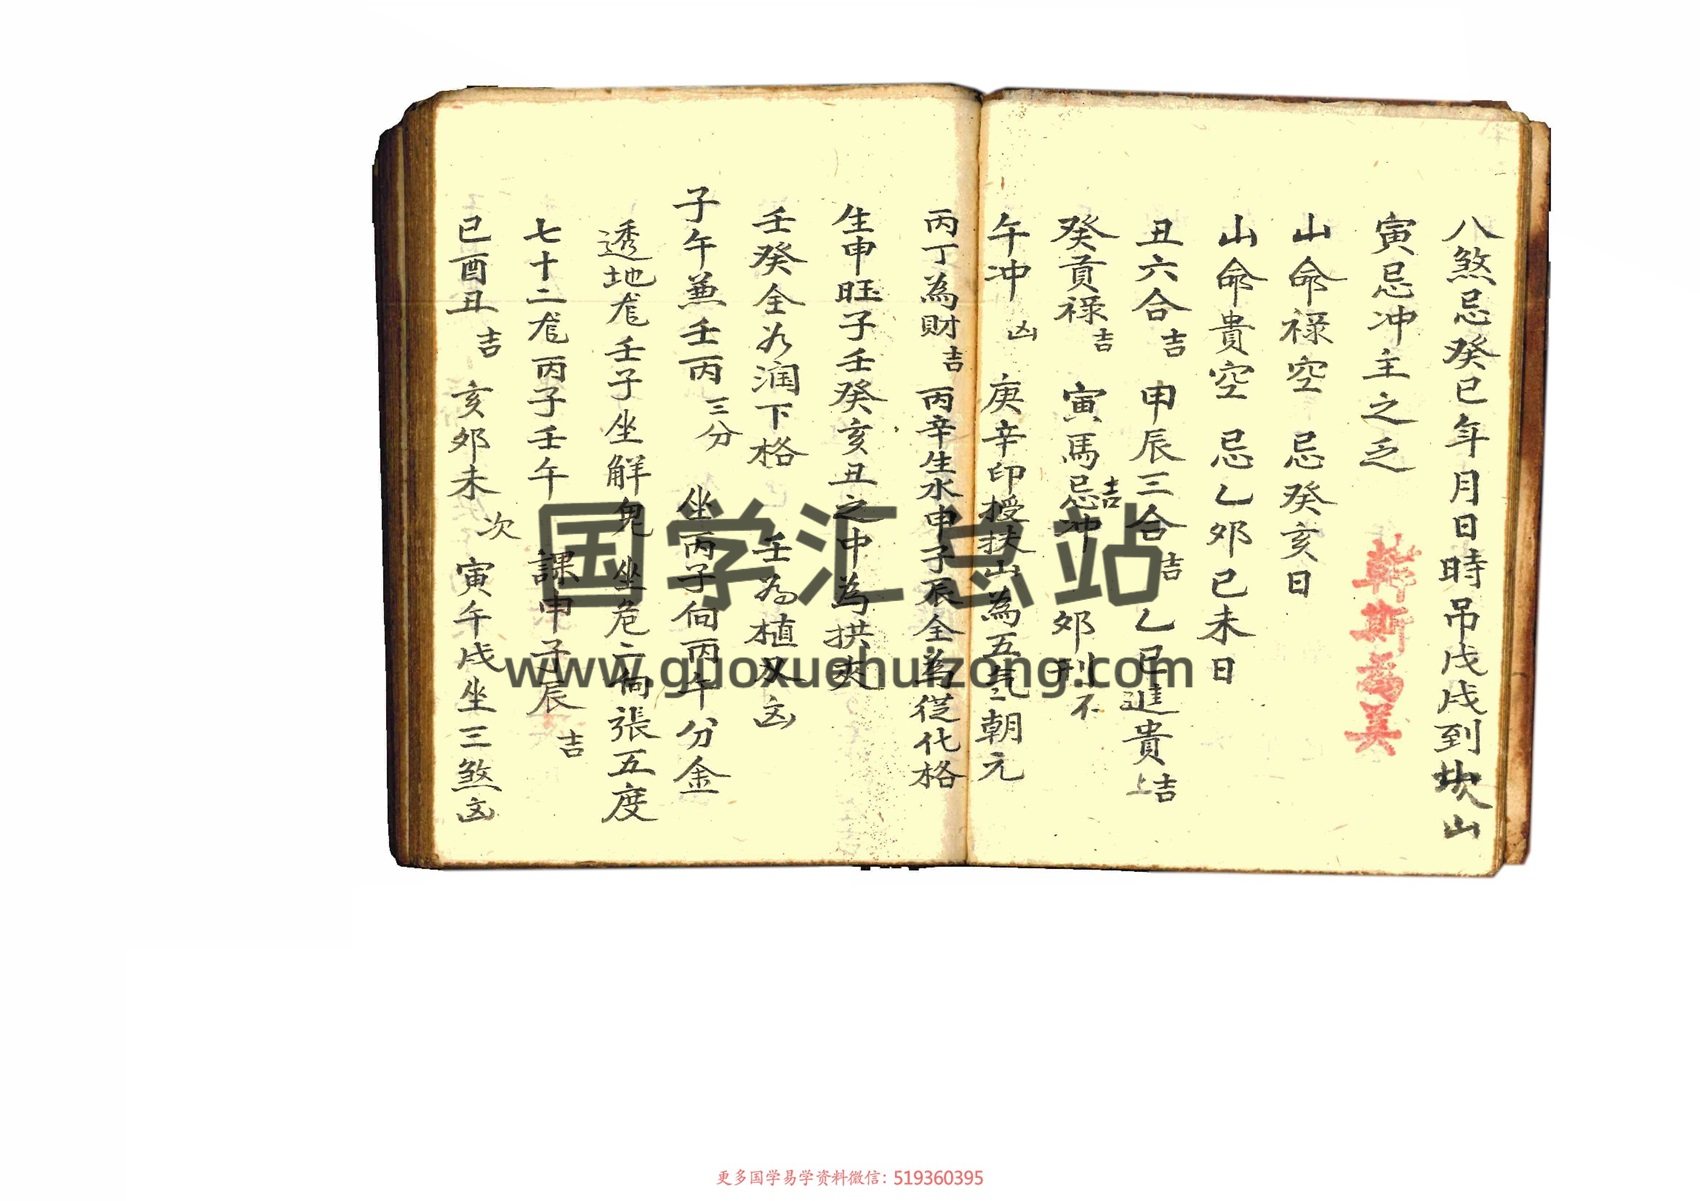 八煞忌癸巳年月日時吊戊戌到坎山
寅忌冲主之乏
韓斯為美
山命禄空 忌癸亥日
山命貴空 忌乙卯己未日
丑六合吉 申辰三合吉 乙巳進貴上吉
癸貢禄吉 寅馬忌冲吉 卯刑不
午冲 凶 庚辛印授扶山為五气朝元
丙丁為財吉 丙辛生水申子辰全為從化格
生申旺子壬癸亥丑之中為拱夾
壬癸全为润下格 壬為植双凶
子午兼壬丙三分 坐丙子向丙午分金
透地龙壬子坐解鬼 坐危六向張五度
七十二龙丙子壬午 課申子辰吉
巳酉丑吉 亥卯未次 寅午戌坐三煞凶
国学汇总站
www.guoxuehuizong.com
更多国学易学资料微信：519360395